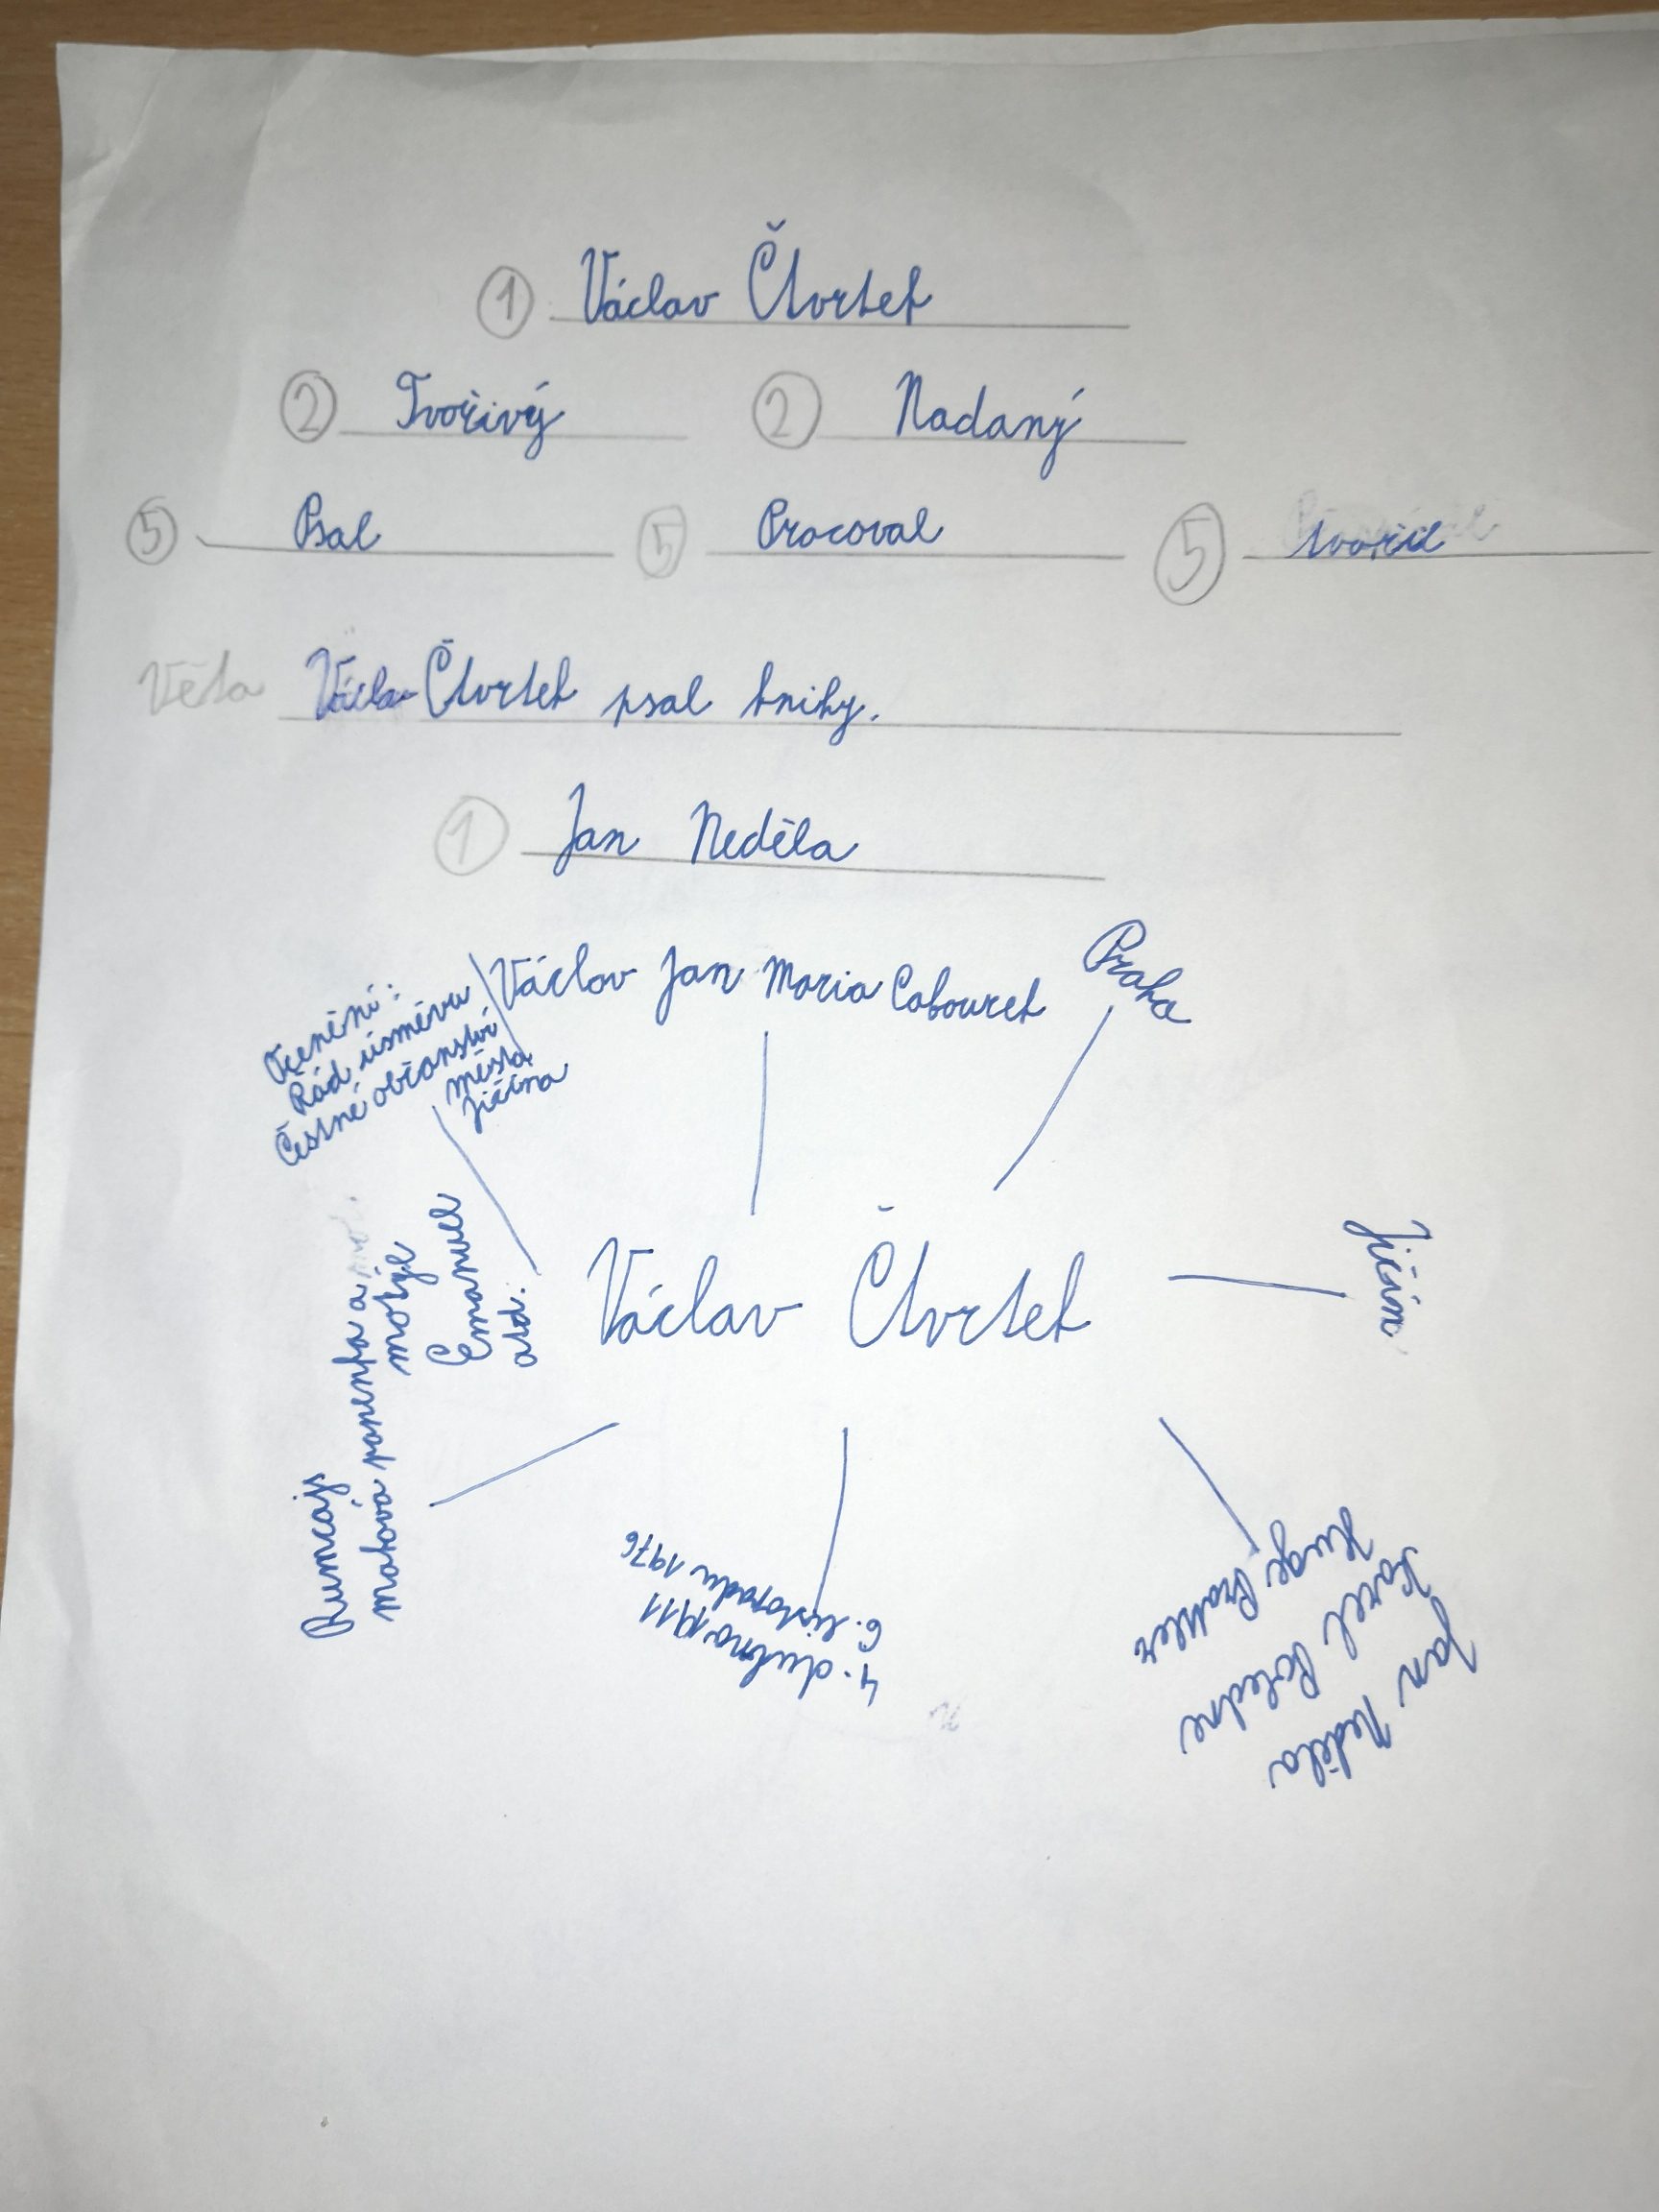 1 Václav Čtvrtek
2 Tvořivý 2 Nadaný
5 Psal 5 Pracoval 5 tvořil
Věta Václav Čtvrtek psal knihy.
1 Jan Neděla
Václav Jan Maria Cabourek
Praha
Ocenění:
Řád úsměvu
Čestné občanství
města
Jičína
Václav Čtvrtek
Jičín
Rumcajs
maková panenka a
motýl
Emanuel
atd.
4. dubna 1911
6. listopadu 1976
Jan Neděla
Karel Poledne
Hugo Prattler